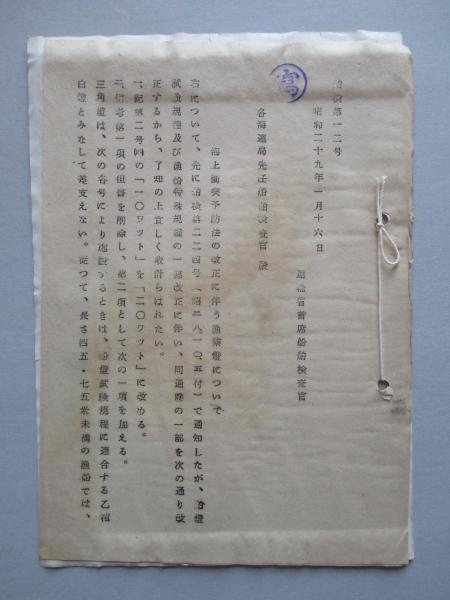 寫
舶檢第一二号
昭和二十九年一月十六日
運輸省首席船舶檢査官
各海運局先任船舶檢査官 殿
海上衝突予防法の改正に伴う漁業燈について
右について、先に舶檢第二二四号(昭二八、一〇、五付)で通知したが、船燈
試驗規程及び漁船特殊規程の一部改正に伴い、同通牒の一部を次の通り改
正するから、了知の上宜しく取計らわれたい。
一、記第二号㈣の「一〇ワット」を「二〇ワット」に改める。
二、備考第一項の但書を削除し、第二項として次の一項を加える。
三角燈は、次の各号により施設するときは、船燈試驗規程に適合する乙種
白燈とみなして差支えない。従つて、長さ四五・七五米未満の漁船では、